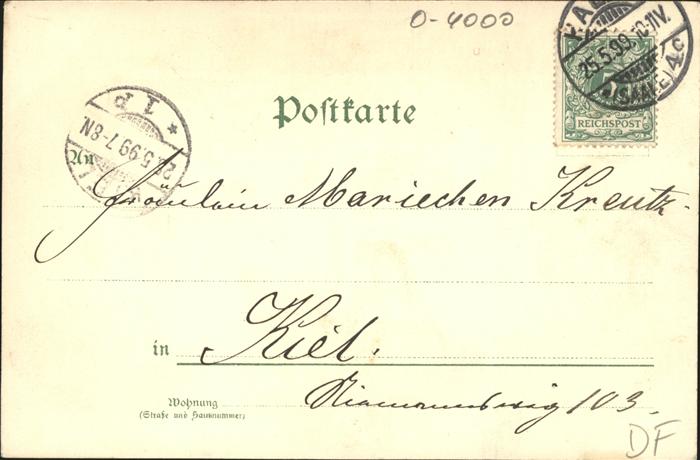 0-4000
HALLE
25.5.99.10-11V.
(SAALE) 4c
REICHSPOST
Postkarte
* 1 P
.5.99.7-8N
KIEL
An
Fräulein Mariechen Kreutz-
in Kiel.
Wohnung
(Straße und Hausnummer)
103.
DF